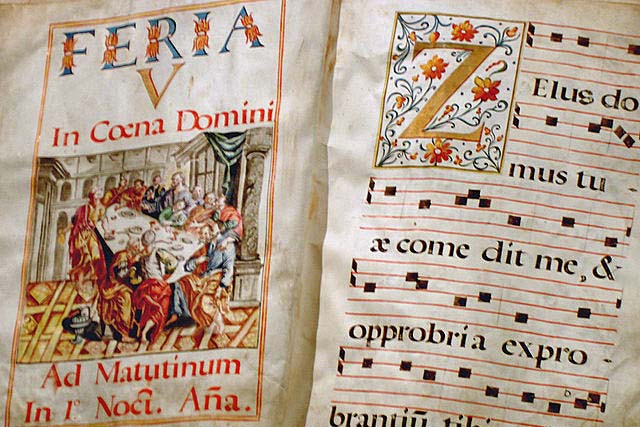 FERIA
V
In Cœna Domini
Ad Matutinum
In 1º Noct. Aña.
Zelus do
mus tu
æ come dit me, &
opprobria expro -
brantiũ tibi